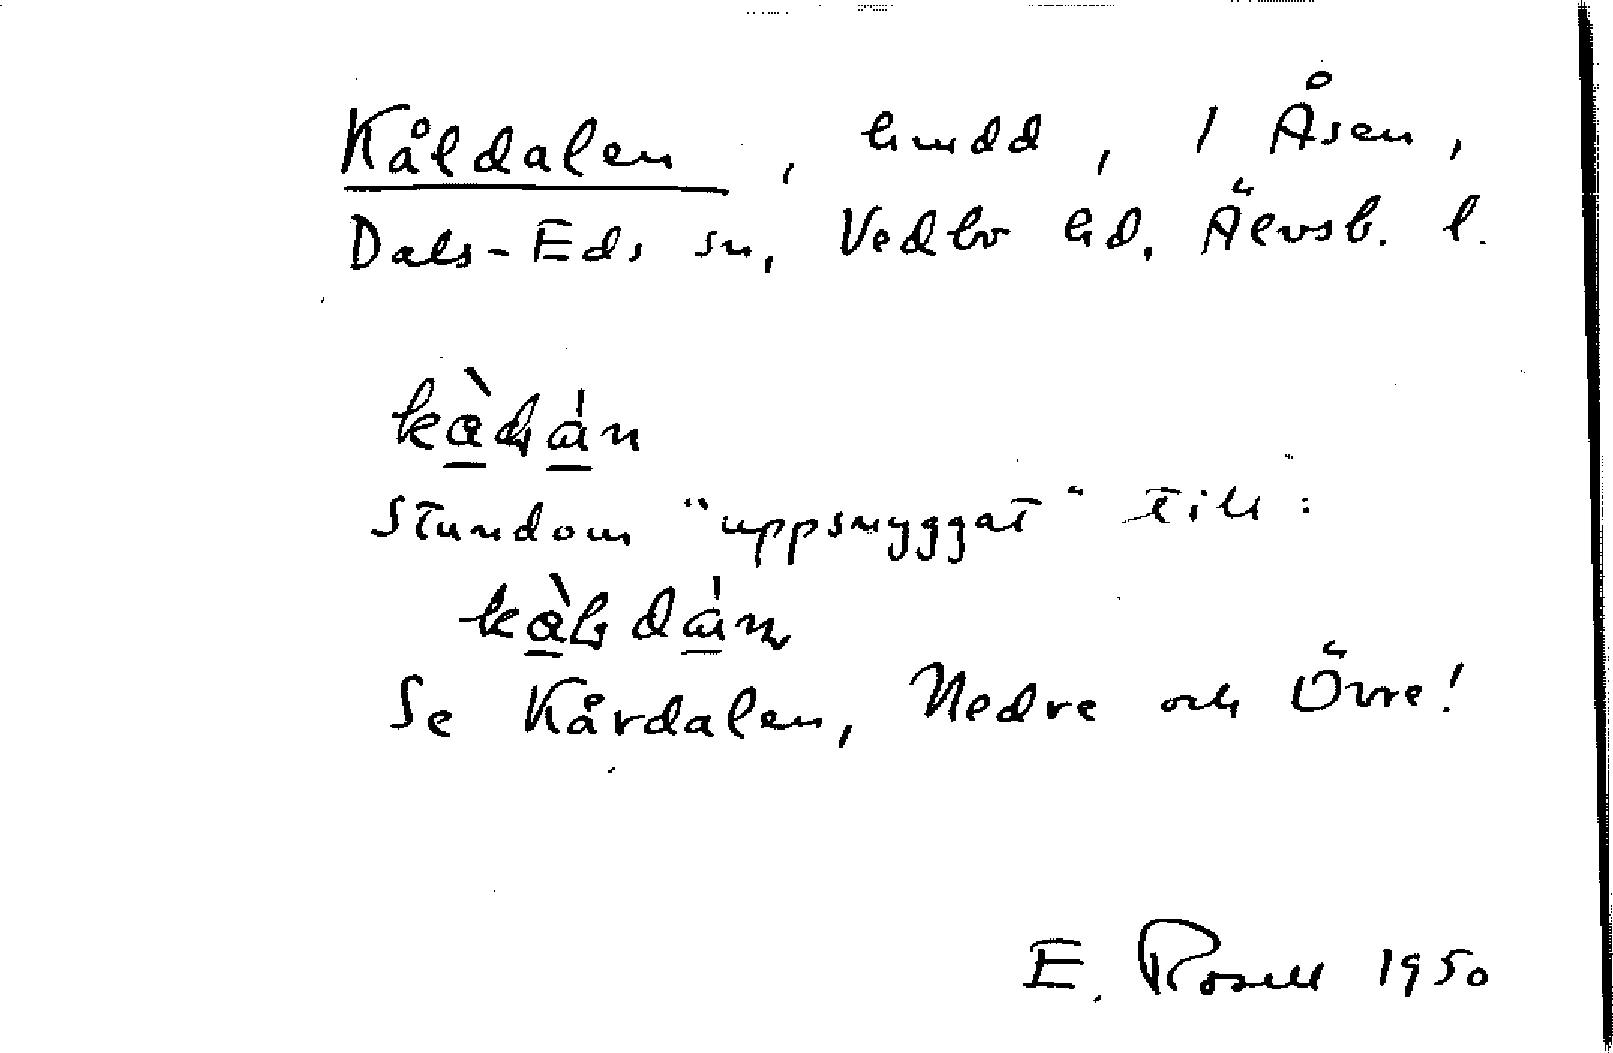 Kåldalen, hmdd, 1 Åsen,
Dals-Eds sn, Vedbo hd. Älvsb. l.
Stundom "uppsnyggat" till:
Se Kårdalen, Nedre och Övre!
E. Rosell 1950